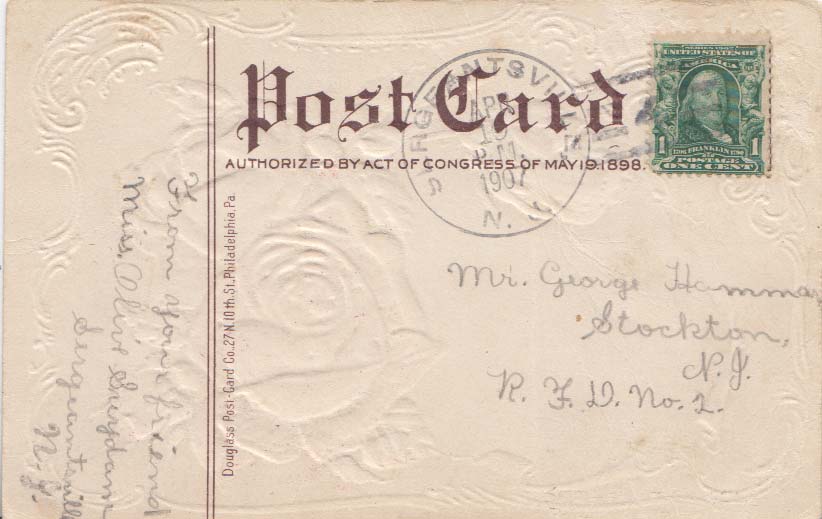 Post Card
AUTHORIZED BY ACT OF CONGRESS OF MAY 19. 1898.
SERGEANTSVILLE
APR
P M
1907
N. J.
SERIES 1902
UNITED STATES OF
AMERICA
1 1
FRANKLIN
POSTAGE
ONE CENT
Mr. George Hamma
Stockton,
N. J.
R. F. D. No. 2.
Douglass Post-Card Co., 27 N. 10th. St. Philadelphia, Pa.
From your friend
Miss. Olive Suydam
Sergeantsville
N. J.